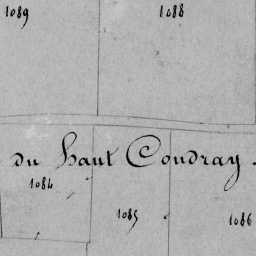 1089 1088
du Haut Coudray.
1084
1085 1086